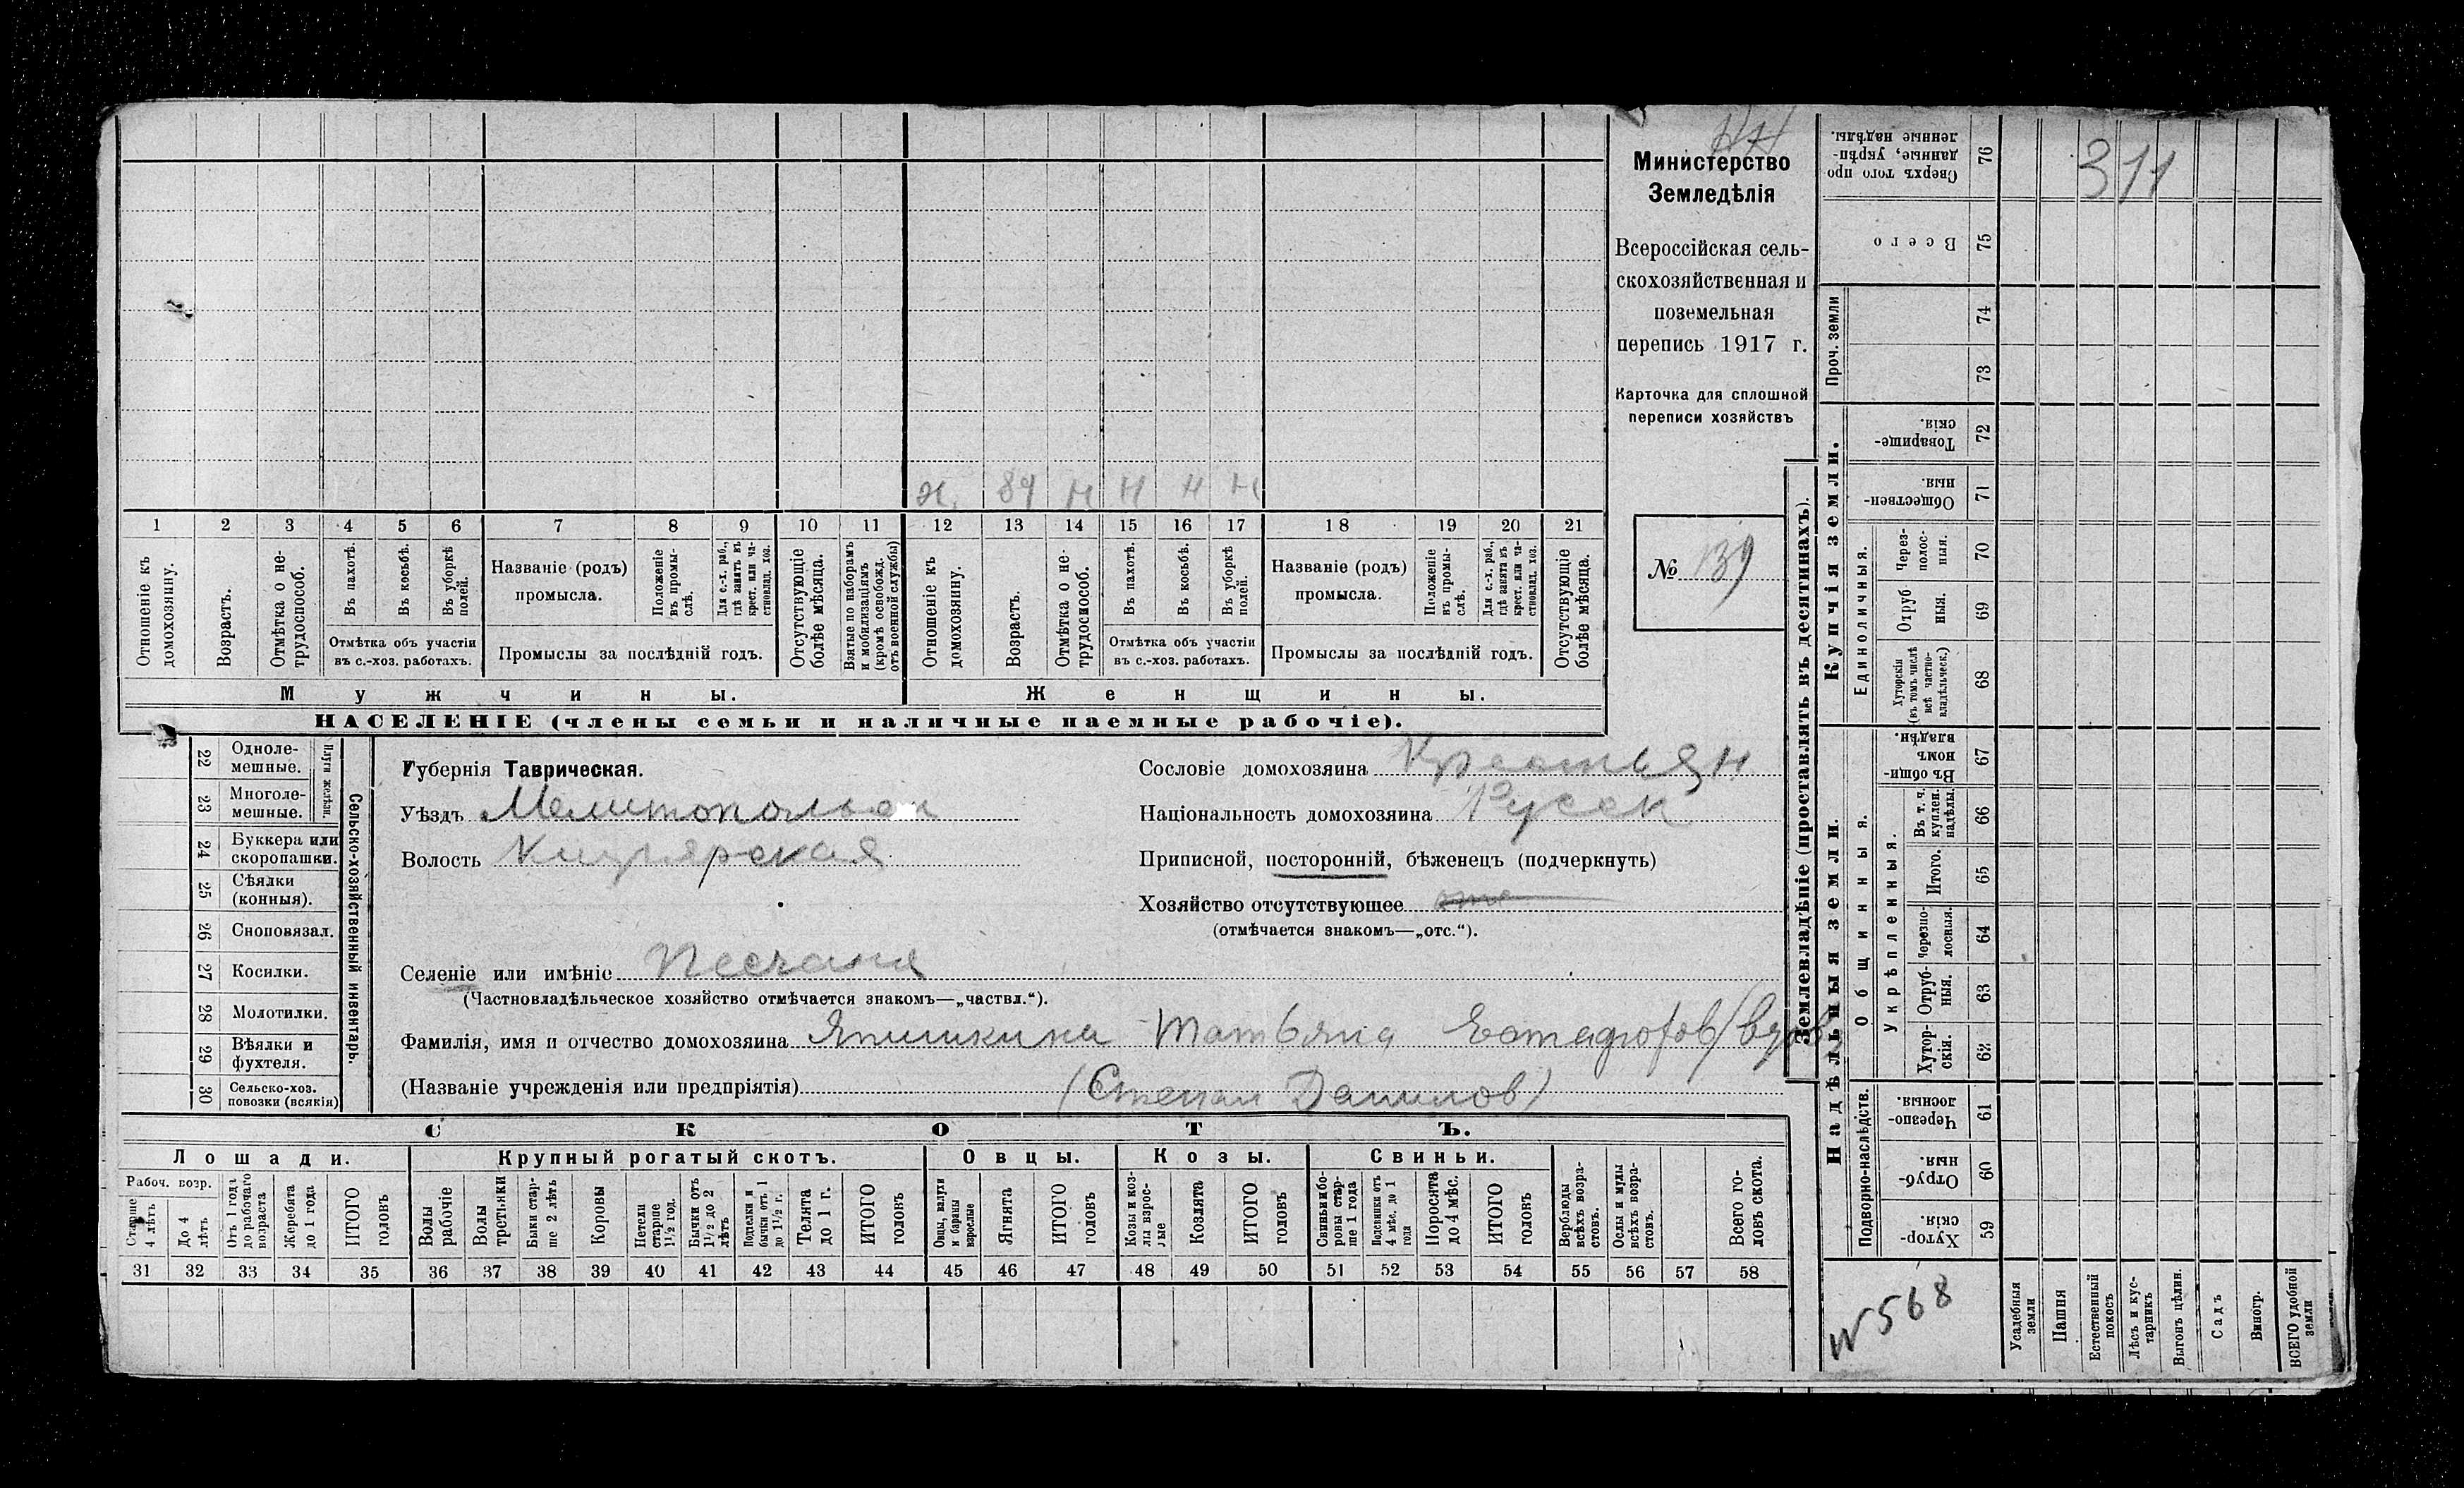 Министерство
Земледѣлія
Всероссійская сель-
скохозяйственная и
поземельная
перепись 1917 г.
Карточка для сплошной
переписи хозяйствъ
№ 139
х. 89 н н н н
1 2 3 4 5 6 7 8 9 10 11 12 13 14 15 16 17 18 19 20 21
Отношеніе къ домохозяину.
Возрастъ.
Отмѣтка о не-трудоспособ.
Въ пахотѣ.
Въ косьбѣ.
Въ уборкѣ полей.
Отмѣтка объ участіи
въ с.-хоз. работахъ.
Названіе (родъ)
промысла.
Положеніе въ промы-слѣ.
Для с.-х. раб., гдѣ занятъ въ крест. или ча-стновлад. хоз.
Промыслы за послѣдній годъ.
Отсутствующіе болѣе мѣсяца.
Взятые по наборамъ и мобилизаціямъ (кромѣ освобожд. отъ военной службы)
Отношеніе къ домохозяину.
Возрастъ.
Отмѣтка о не-трудоспособ.
Въ пахотѣ.
Въ косьбѣ.
Въ уборкѣ полей.
Отмѣтка объ участіи
въ с.-хоз. работахъ.
Названіе (родъ)
промысла.
Положеніе въ промы-слѣ.
Для с.-х. раб., гдѣ занята въ крест. или ча-стновлад. хоз.
Промыслы за послѣдній годъ.
Отсутствующіе болѣе мѣсяца.
Мужчины. Женщины.
НАСЕЛЕНІЕ (члены семьи и наличные наемные рабочіе).
22 Одноле-мешные.
23 Многоле-мешные.
Плуги желѣзн.
24 Буккера или скоропашки.
25 Сѣялки (конныя).
26 Сноповязал.
27 Косилки.
28 Молотилки.
29 Вѣялки и фухтеля.
30 Сельско-хоз. повозки (всякія)
Сельско-хозяйственный инвентарь.
Губернія Таврическая.
Уѣздъ
Волость
Селеніе или имѣніе Песчаня
(Частновладѣльческое хозяйство отмѣчается знакомъ—„частвл.“).
Сословіе домохозяина Крестьян
Національность домохозяина Русск
Приписной, посторонній, бѣженецъ (подчеркнуть)
Хозяйство отсутствующее отс
(отмѣчается знакомъ—„отс.“).
Фамилія, имя и отчество домохозяина Япишкина Татьяна
(Названіе учрежденія или предпріятія) (Степан Данилов)
СКОТЪ.
Лошади. Крупный рогатый скотъ. Овцы. Козы. Свиньи.
Рабоч. возр.
Старше 4 лѣтъ
До 4 лѣтъ
Отъ 1 года до рабочаго возраста
Жеребята до 1 года
ИТОГО головъ
Волы рабочіе
Волы третьяки
Быки стар-ше 2 лѣтъ
Коровы
Нетели старше 1½ год.
Бычки отъ 1½ до 2 лѣтъ
Подтелки и бычки отъ 1 до 1½ г.
Телята до 1 г.
ИТОГО головъ
Овцы, валухи и бараны взрослые
Ягнята
ИТОГО головъ
Козы и коз-лы взрос-лые
Козлята
ИТОГО головъ
Свиньи и бо-ровы стар-ше 1 года
Подсвинки отъ 4 мѣс. до 1 года
Поросята до 4 мѣс.
ИТОГО головъ
Верблюды всѣхъ возра-стовъ.
Ослы и мулы всѣхъ возра-стовъ.
Всего го-ловъ скота.
31 32 33 34 35 36 37 38 39 40 41 42 43 44 45 46 47 48 49 50 51 52 53 54 55 56 57 58
Землевладѣніе (проставлять въ десятинахъ).
Купчія земли.
Надѣльныя земли.
Проч. земли
Единоличныя.
Общинныя.
Укрѣпленныя.
Подворно-наслѣдств.
Сверхъ того про данные, укрѣп-ленные надѣлы. 76
311
Всего 75
74
73
Товарище-скія. 72
Обществен-ныя. 71
Через-полос-ныя. 70
Отруб ныя. 69
Хуторскія (въ томъ числѣ всѣ частно-владѣльческ.) 68
Въ общи-номъ владѣн. 67
Въ т. ч. куплен. надѣлы. 66
Итого. 65
Черезпо-лосныя. 64
Отруб-ныя. 63
Хутор-скія. 62
Черезпо-лосныя. 61
Отруб-ныя. 60
Хутор-скія. 59
N 568
Усадебныя земли
Пашня
Естественный покосъ
Лѣсъ и кус-тарникъ
Выгонъ цѣлин.
Садъ
Виногр.
ВСЕГО удобной земли